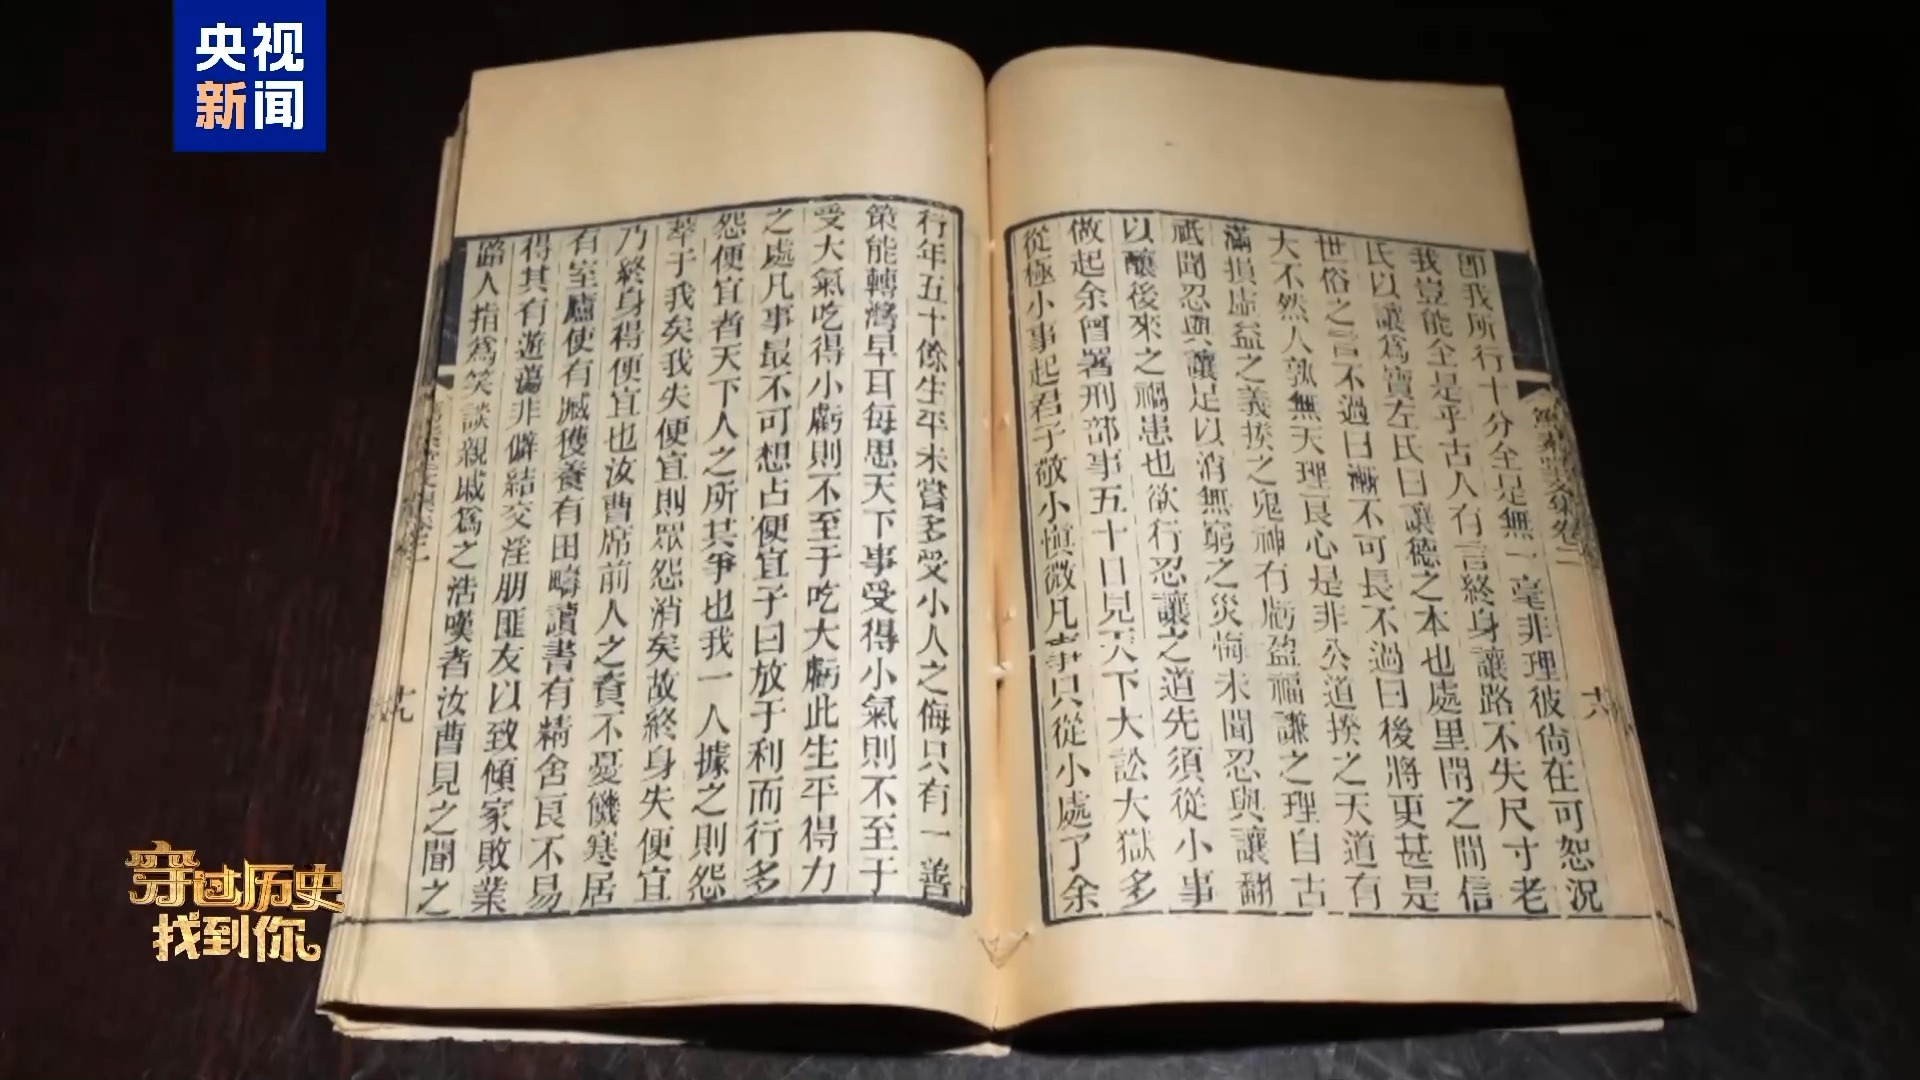 央视
新闻
卽我所行十分全是無一毫非理彼尙在可恕況
我豈能全是乎古人有言終身讓路不失尺寸老
氏以讓爲寶左氏曰讓德之本也處里閈之間信
世俗之言不過曰漸不可長不過曰後將更甚是
大不然人孰無天理良心是非公道揆之天道有
滿損虛益之義揆之鬼神有虧盈福謙之理自古
祇聞忍與讓足以消無窮之災悔未聞忍與讓翻
以釀後來之禍患也欲行忍讓之道先須從小事
做起余曾署刑部事五十日見天下大訟大獄多
從極小事起君子敬小愼微凡事只從小處了余
行年五十餘生平未嘗多受小人之侮只有一善
策能轉灣早耳每思天下事受得小氣則不至于
受大氣吃得小虧則不至于吃大虧此生平得力
之處凡事最不可想占便宜子曰放于利而行多
怨便宜者天下人之所其爭也我一人據之則怨
萃于我矣我失便宜則眾怨消矣故終身失便宜
乃終身得便宜也汝曹席前人之資不憂饑寒居
有室廬使有臧獲養有田疇讀書有精舍良不易
得其有遊蕩非僻結交淫朋匪友以致傾家敗業
路人指爲笑談親戚爲之浩嘆者汝曹見之聞之
十九
穿过历史
找到你